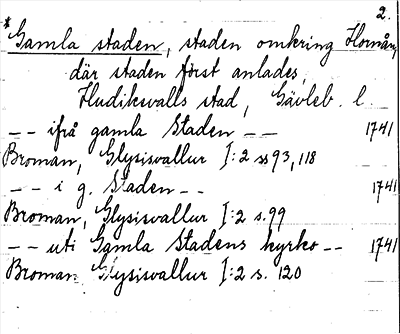 2.
* Gamla staden, staden omkring Hornån,
där staden först anlades,
Hudiksvalls stad, Gävleb. l.
-- ifrå gamla Staden -- 1741
Broman, Glysisvallur I:2 ss 93, 118
-- i g. Staden -- 1741
Broman, Glysisvallur I:2 s. 99
-- uti Gamla Stadens kyrko -- 1741
Broman Glysisvallur I:2 s. 120